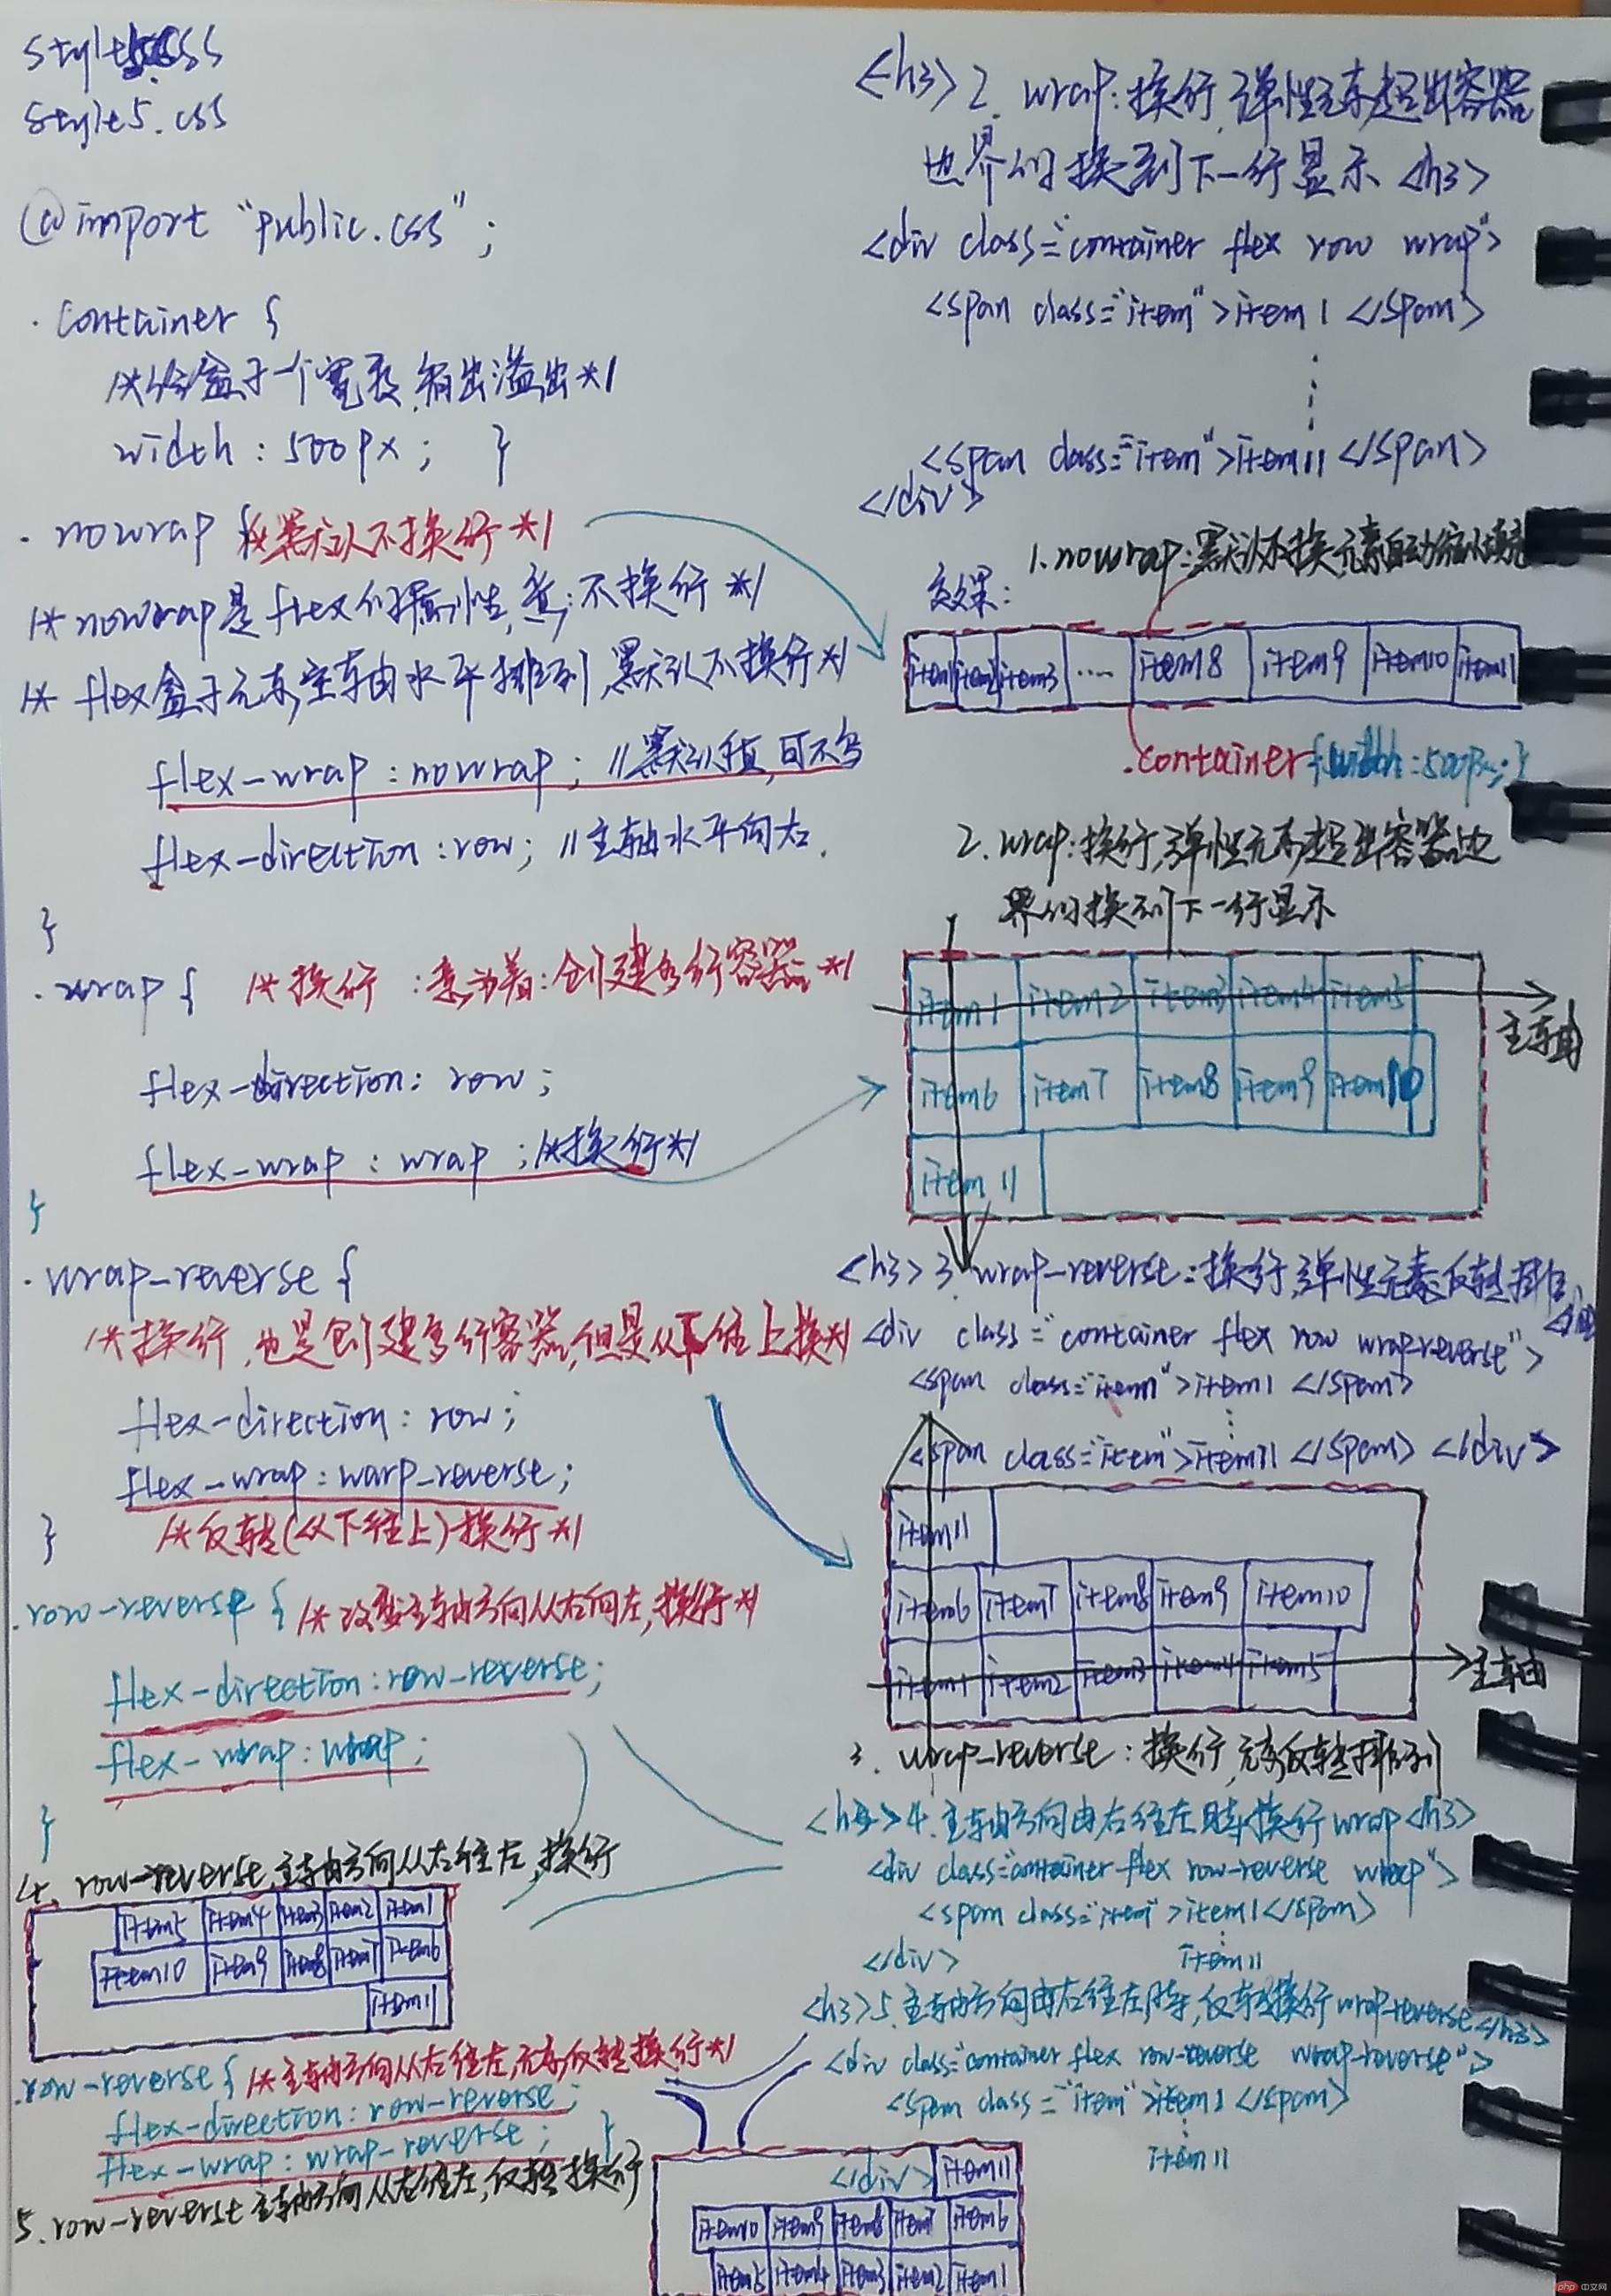 style5.css
@import "public.css";
.container {
/*给盒子一个宽度,有出溢出*/
width:500px; }
.nowrap {/*默认不换行*/
/*nowrap是flex的属性,意:不换行*/
/* flex盒子元素主轴水平排列,默认不换行*/
flex-wrap:nowrap; //默认值,可不写
flex-direction:row; //主轴水平向右.
}
.wrap { /*换行:意为着:创建多行容器*/
flex-direction: row;
flex-wrap: wrap;/*换行*/
}
.wrap-reverse {
/*换行,也是创建多行容器,但是从下往上换*/
flex-direction: row;
flex-wrap: warp-reverse;
} /*反转(从下往上)换行*/
.row-reverse { /*改变主轴方向从右向左,换行*/
flex-direction:row-reverse;
flex-wrap:wrap;
}
4. row-reverse,主轴方向从右往左,换行
item5 item4 item3 item2 item1
item10 item9 item8 item7 item6
item11
.row-reverse { /*主轴方向从右往左,元素反转换行*/
flex-direction: row-reverse;
flex-wrap: wrap-reverse; }
5. row-reverse主轴方向从右往左,反转换行
<h3>2. wrap:换行,弹性元素超出容器
边界的换到下一行显示<h3>
<div class="container flex row wrap">
<span class="item">item1</span>
<span class="item">item11</span>
</div>
1.nowrap:默认不换元素自动缩小填充
效果:
item1 item2 item3 .... item8 item9 item10 item11
.container{width:500px;}
2.wrap:换行,弹性元素超出容器边
界的换到下一行显示
item1 item2 item3 item4 item5
主轴
item6 item7 item8 item9 item10
item11
<h3>3.wrap-reverse:换行,弹性元素反转排
<div class="container flex row wrap-reverse">
<span class="item">item1</span>
<span class="item">item11</span></div>
item11
item6 item7 item8 item9 item10
item1 item2 item3 item4 item5
主轴
3. wrap-reverse:换行,元素反转排列
<h3>4.主轴方向由右往左时,换行wrap<h3>
<div class="container flex row-reverse wrap">
<span class="item">item1</span>
</div> item11
<h3>5.主轴方向由右往左时,反转换行wrap-reverse</h3>
<div class="container flex row-reverse wrap-reverse">
<span class="item">item1</span>
item11
</div> item11
item10 item9 item8 item7 item6
item5 item4 item3 item2 item1
php 中文网